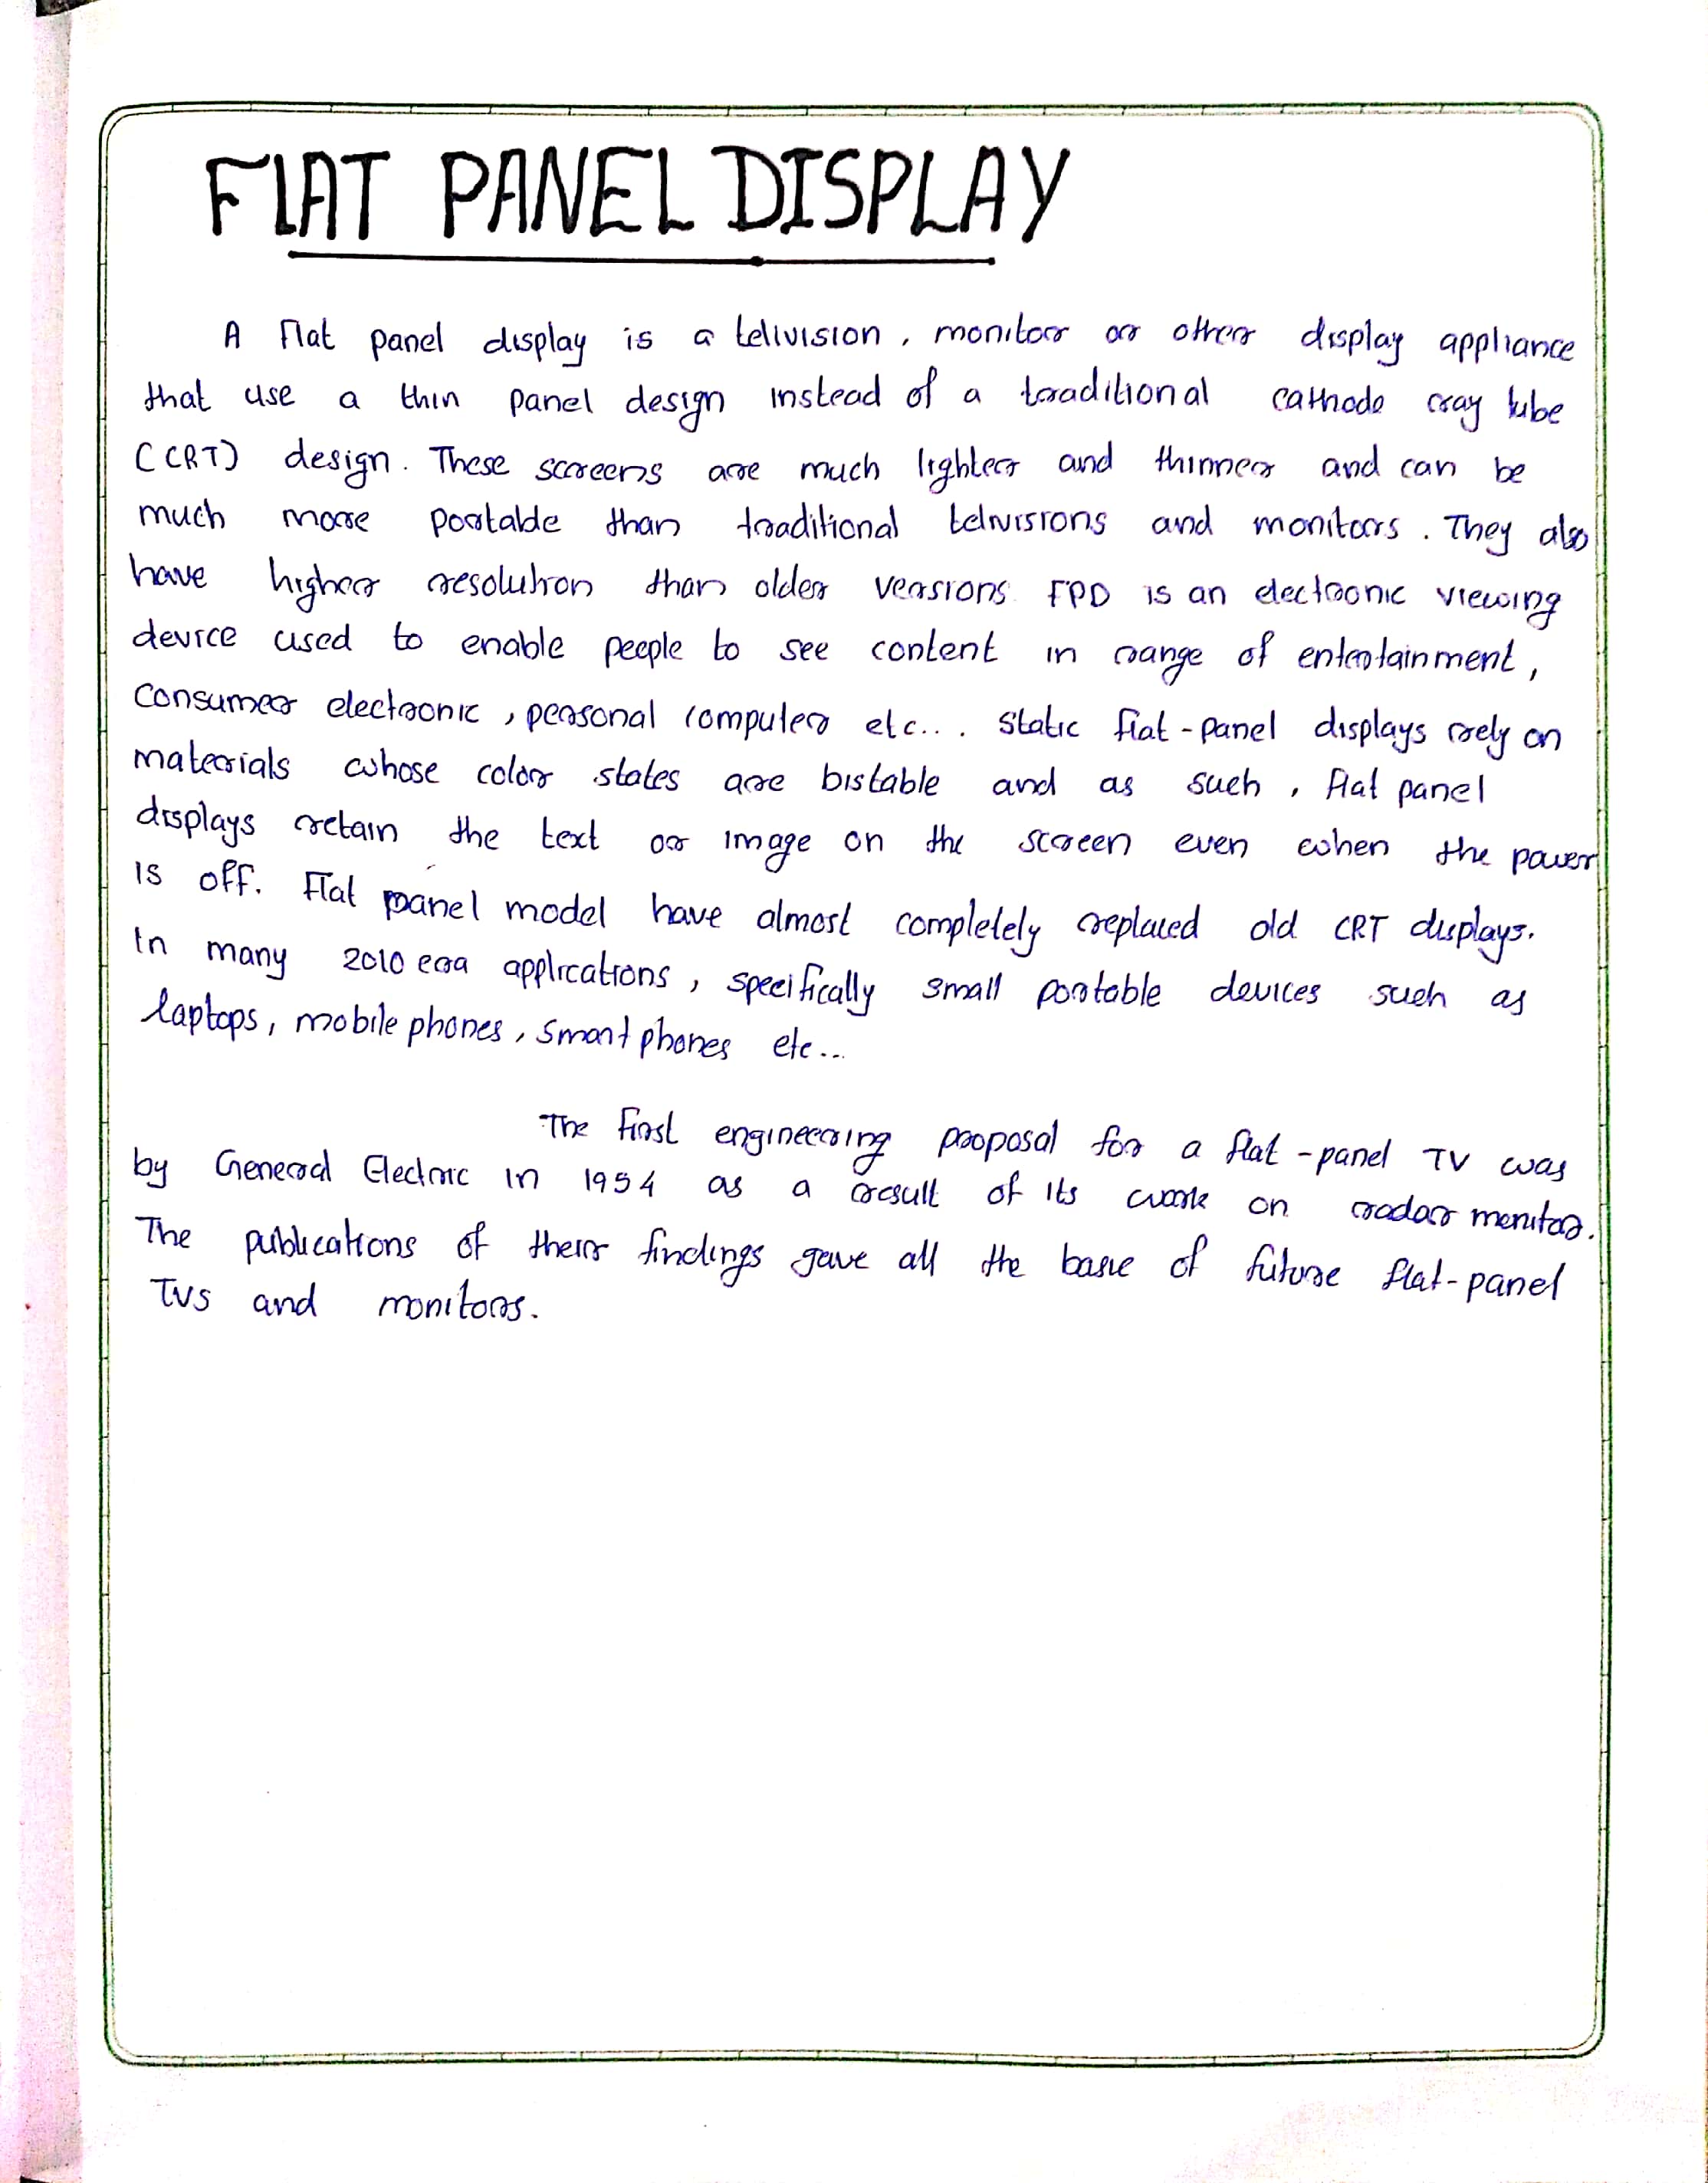 FLAT PANEL DISPLAY
A flat panel display is a telivision, monitor or other display appliance
that use a thin panel design instead of a traditional cathode ray tube
(CRT) design. These screens are much lighter and thinner and can be
much more portable than traditional telivisions and monitors. They also
have higher resolution than older versions. FPD is an electronic viewing
device used to enable people to see content in range of entertainment,
consumer electronic, personal computer etc... Static flat-panel displays rely on
materials whose color states are bistable and as such, flat panel
displays retain the text or image on the screen even when the power
is off. Flat panel model have almost completely replaced old CRT displays.
In many 2010 era applications, specifically small portable devices such as
laptops, mobile phones, smart phones etc...
The first engineering proposal for a flat-panel TV was
by General Electric in 1954 as a result of its work on radar monitor.
The publications of their findings gave all the basic of future flat-panel
TVs and monitors.